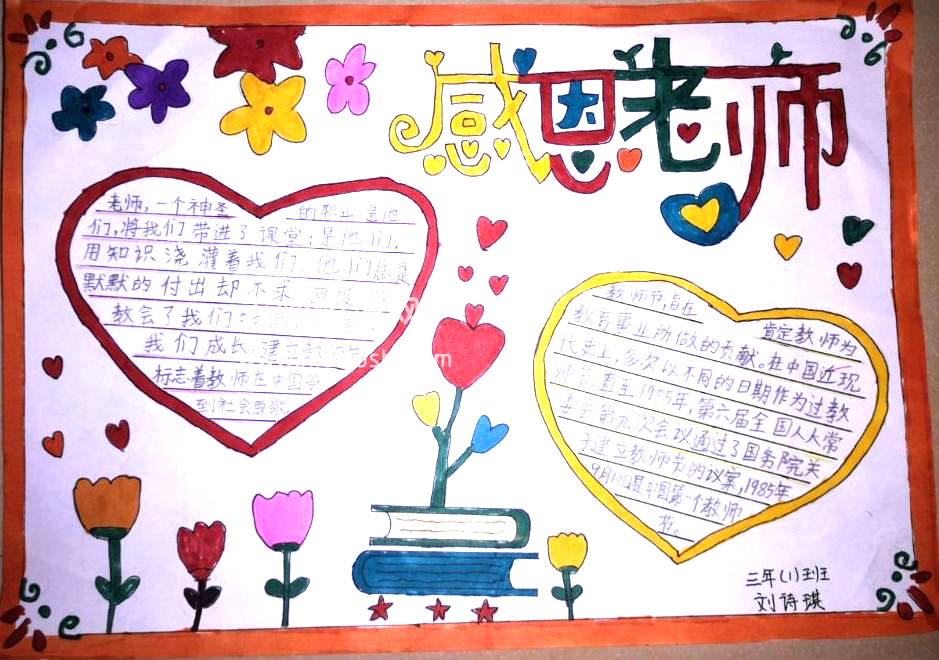 感恩老师
老师,一个神圣 的职业 是他
们,将我们带进了课堂;是他们,
用知识浇灌着我们,他们总是
默默的付出却不求
教会了我们
我们成长,建立教师
标志着教师在中国
到社会尊敬
教师节,旨在
肯定教师为
教育事业所做的贡献。在中国近现
代史上,多次以不同的日期作为过教
师节。直至1955年,第六届全国人大常
委会第九次会议通过了国务院关
于建立教师节的议案,1985年
9月10日是中国第一个教师
节。
三年(1)班
刘诗琪